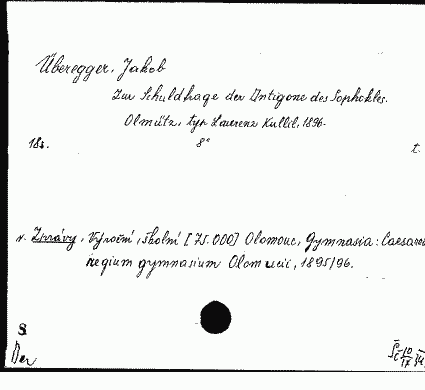 Überegger, Jakob
Zur Schuldfrage der Antigone des Sophokles.
Olmütz, typ. Laurenz Kullil, 1896.
18s. 8° t.
v. Zprávy, Výroční, školní [75.000] Olomouc, Gymnasia: Caesareo
regium gymnasium Olomucii, 1895/96.
S.
Der